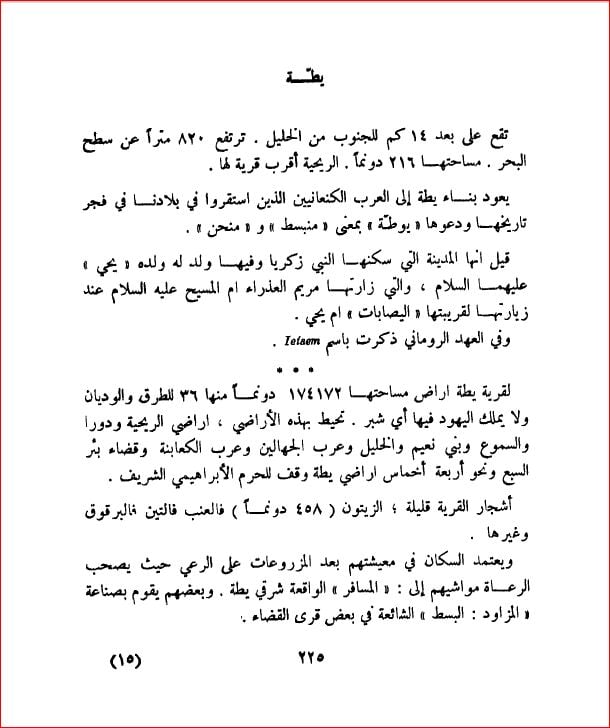 يطّـــة
تقع على بعد ١٤ كم للجنوب من الخليل . ترتفع ٨٢٠ متراً عن سطح
البحر . مساحتهـــا ٢١٦ دونماً . الريحية أقرب قرية لها .
يعود بنـــاء يطة إلى العرب الكنعانيين الذين استقروا في بلادنـــا في فجر
تاريخهـــا ودعوها « يوطـّة » بمعنى « منبسط » و « منحن » .
قيل انها المدينة التي سكنهـــا النبي زكريا وفيهـــا ولد له ولده « يحي »
عليهمـــا السلام ، والتي زارتهـــا مريم العذراء ام المسيح عليه السلام عند
زيارتهـــا لقريبتها « اليصابات » ام يحي .
وفي العهد الروماني ذكرت باسم Ietaem .
* * *
لقرية يطة اراض مساحتهـــا ١٧٤١٧٢ دونمـــاً منها ٣٦ للطرق والوديان
ولا يملك اليهود فيها أي شبر . تحيط بهذه الأراضي ، اراضي الريحية ودورا
والسموع وبني نعيم والخليل وعرب الجهالين وعرب الكعابنة وقضاء بئر
السبع ونحو أربعة أخماس اراضي يطة وقف للحرم الأبراهيمي الشريف .
أشجار القرية قليلة ؛ الزيتون ( ٤٥٨ دونمـــاً ) فالعنب فالتين فالبرقوق
وغيرها .
ويعتمد السكان في معيشتهم بعد المزروعات على الرعي حيث يصحب
الرعـــاة مواشيهم إلى : « المسافر » الواقعة شرقي يطة . وبعضهم يقوم بصناعة
« المزاود : البسط » الشائعة في بعض قرى القضاء .
٢٢٥
(١٥)